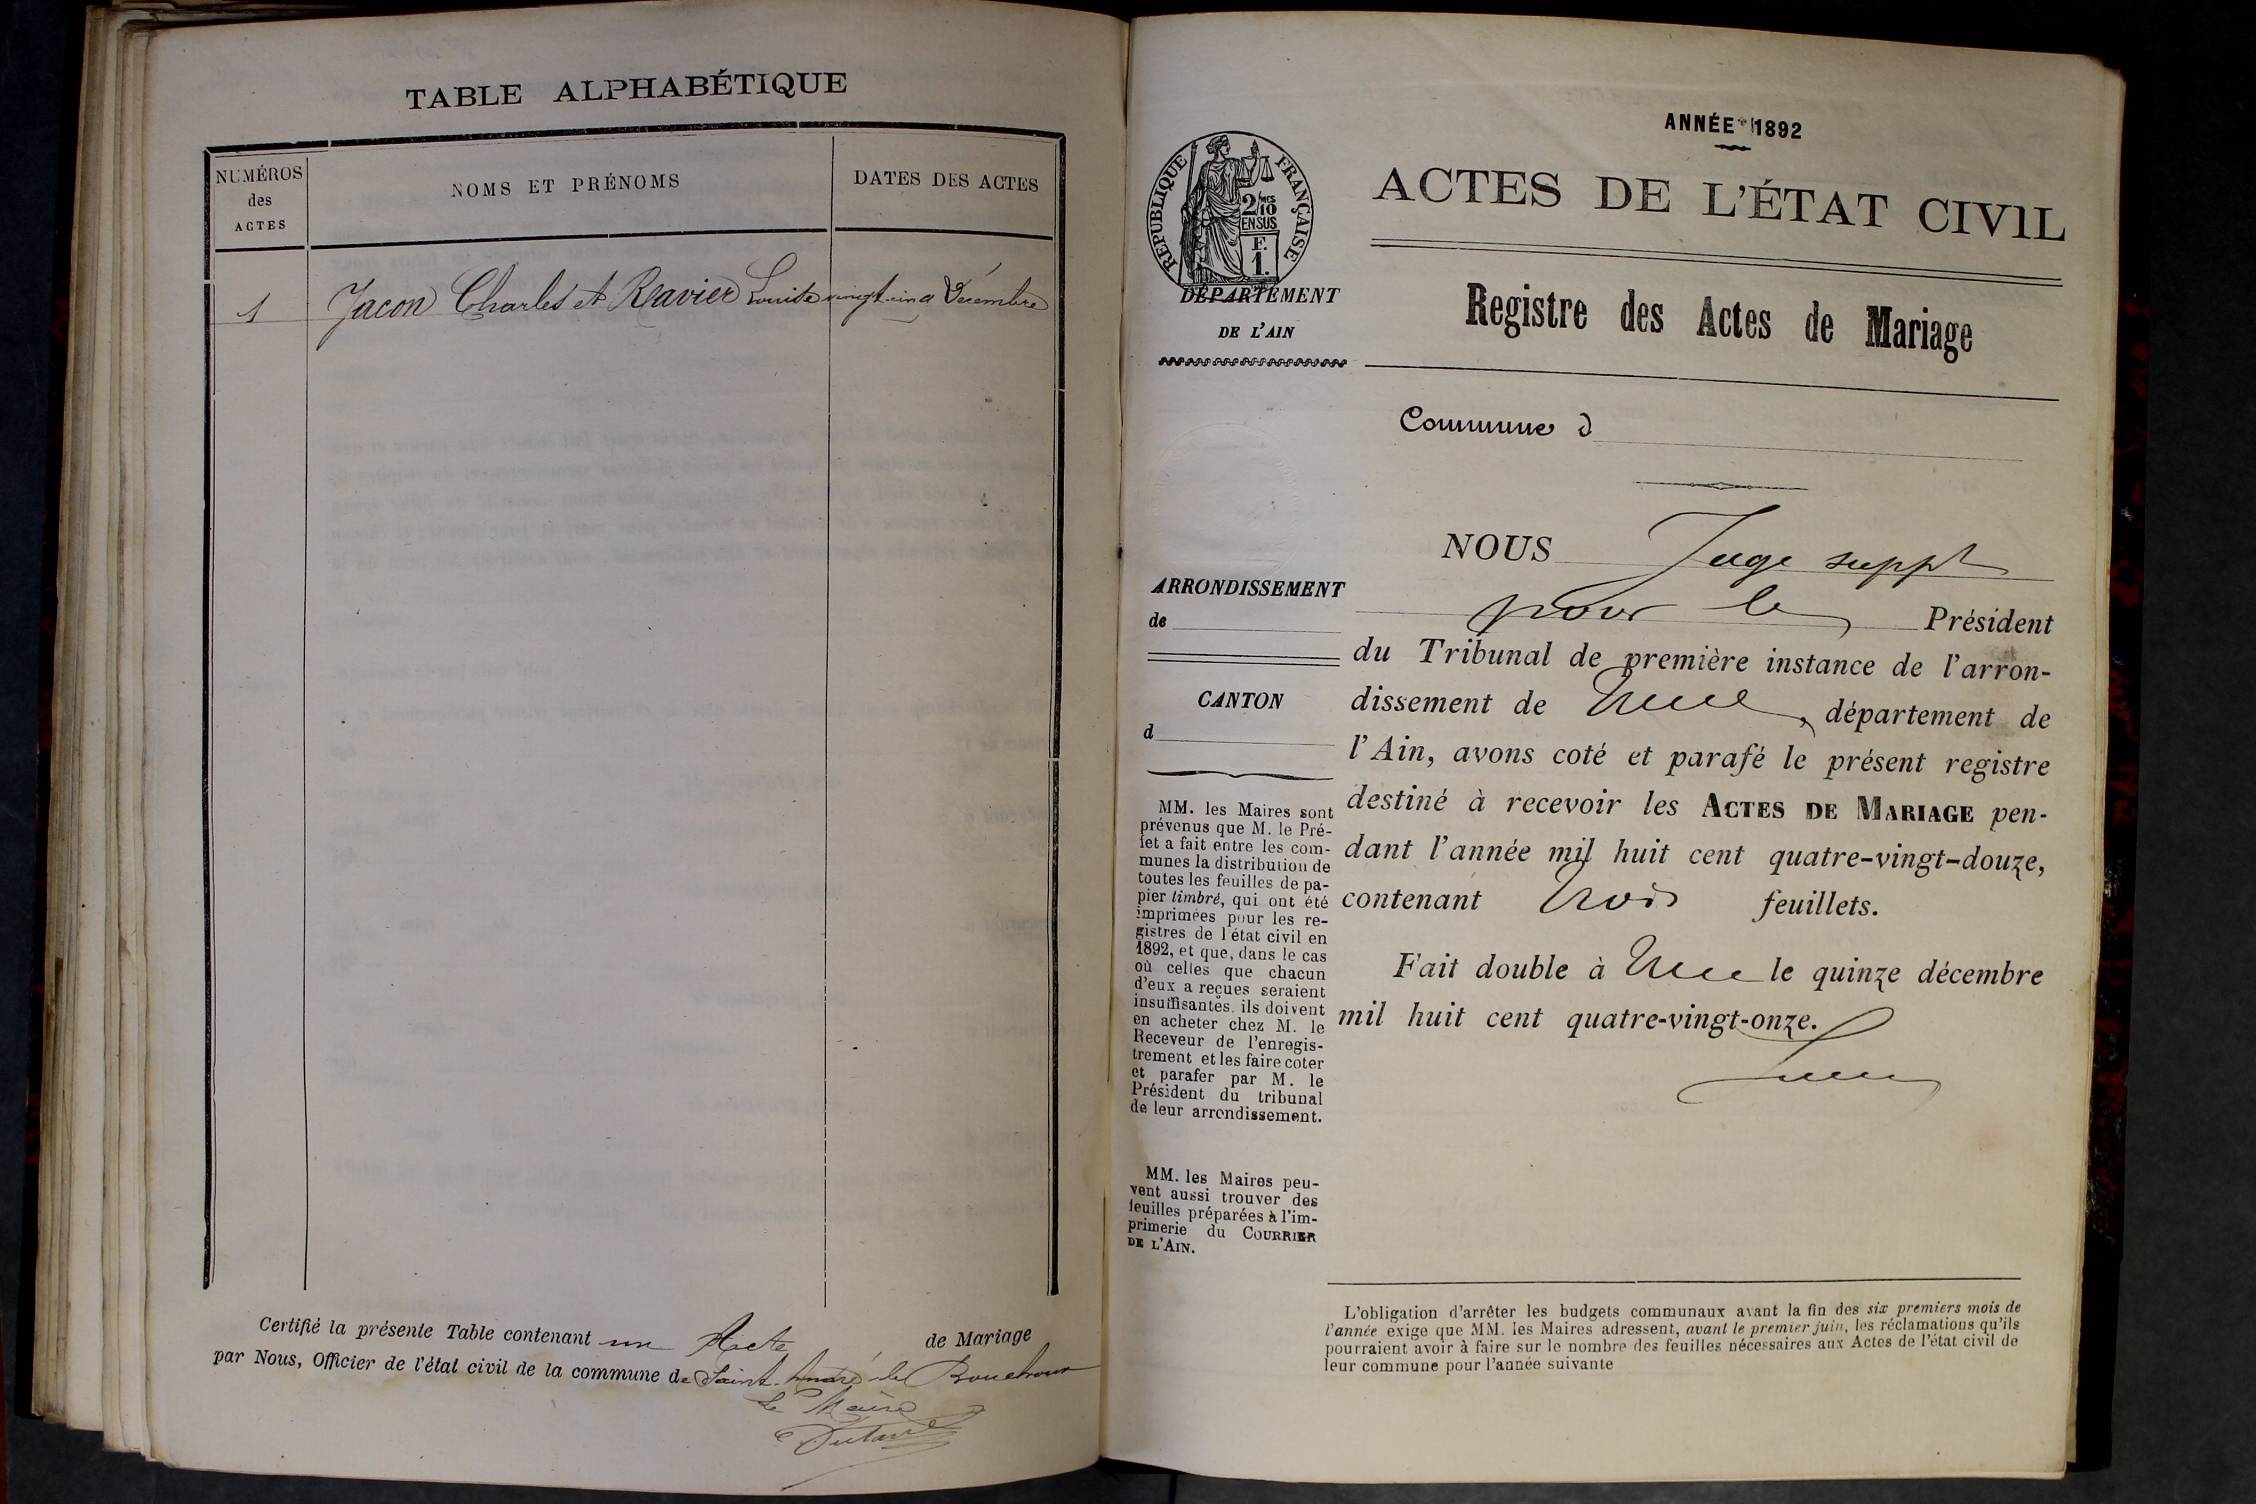 TABLE ALPHABÉTIQUE
NUMÉROS
des
ACTES
NOMS ET PRÉNOMS
DATES DES ACTES
1 Jacon Charles et Ravier Louise vingt-cinq Décembre
Certifié la présente Table contenant un Acte de Mariage
par Nous, Officier de l'état civil de la commune de Saint-André-le-Bouchoux
Le Maire
ANNÉE 1892
RÉPUBLIQUE FRANÇAISE
2/10
EN SUS
F.
1.
ACTES DE L'ÉTAT CIVIL
DÉPARTEMENT
DE L'AIN
Registre des Actes de Mariage
Commune d
ARRONDISSEMENT
de
CANTON
d
MM. les Maires sont
prévenus que M. le Pré-
fet a fait entre les com-
munes la distribution de
toutes les feuilles de pa-
pier timbré, qui ont été
imprimées pour les re-
gistres de l'état civil en
1892, et que, dans le cas
où celles que chacun
d'eux a reçues seraient
insuffisantes, ils doivent
en acheter chez M. le
Receveur de l'enregis-
trement et les faire coter
et parafer par M. le
Président du tribunal
de leur arrondissement.
MM. les Maires peu-
vent aussi trouver des
feuilles préparées à l'im-
primerie du COURRIER
DE L'AIN.
NOUS Juge suppt
pour le Président
du Tribunal de première instance de l'arron-
dissement de , département de
l'Ain, avons coté et parafé le présent registre
destiné à recevoir les ACTES DE MARIAGE pen-
dant l'année mil huit cent quatre-vingt-douze,
contenant trois feuillets.
Fait double à le quinze décembre
mil huit cent quatre-vingt-onze.
L'obligation d'arrêter les budgets communaux avant la fin des six premiers mois de
l'année exige que MM. les Maires adressent, avant le premier juin, les réclamations qu'ils
pourraient avoir à faire sur le nombre des feuilles nécessaires aux Actes de l'état civil de
leur commune pour l'année suivante